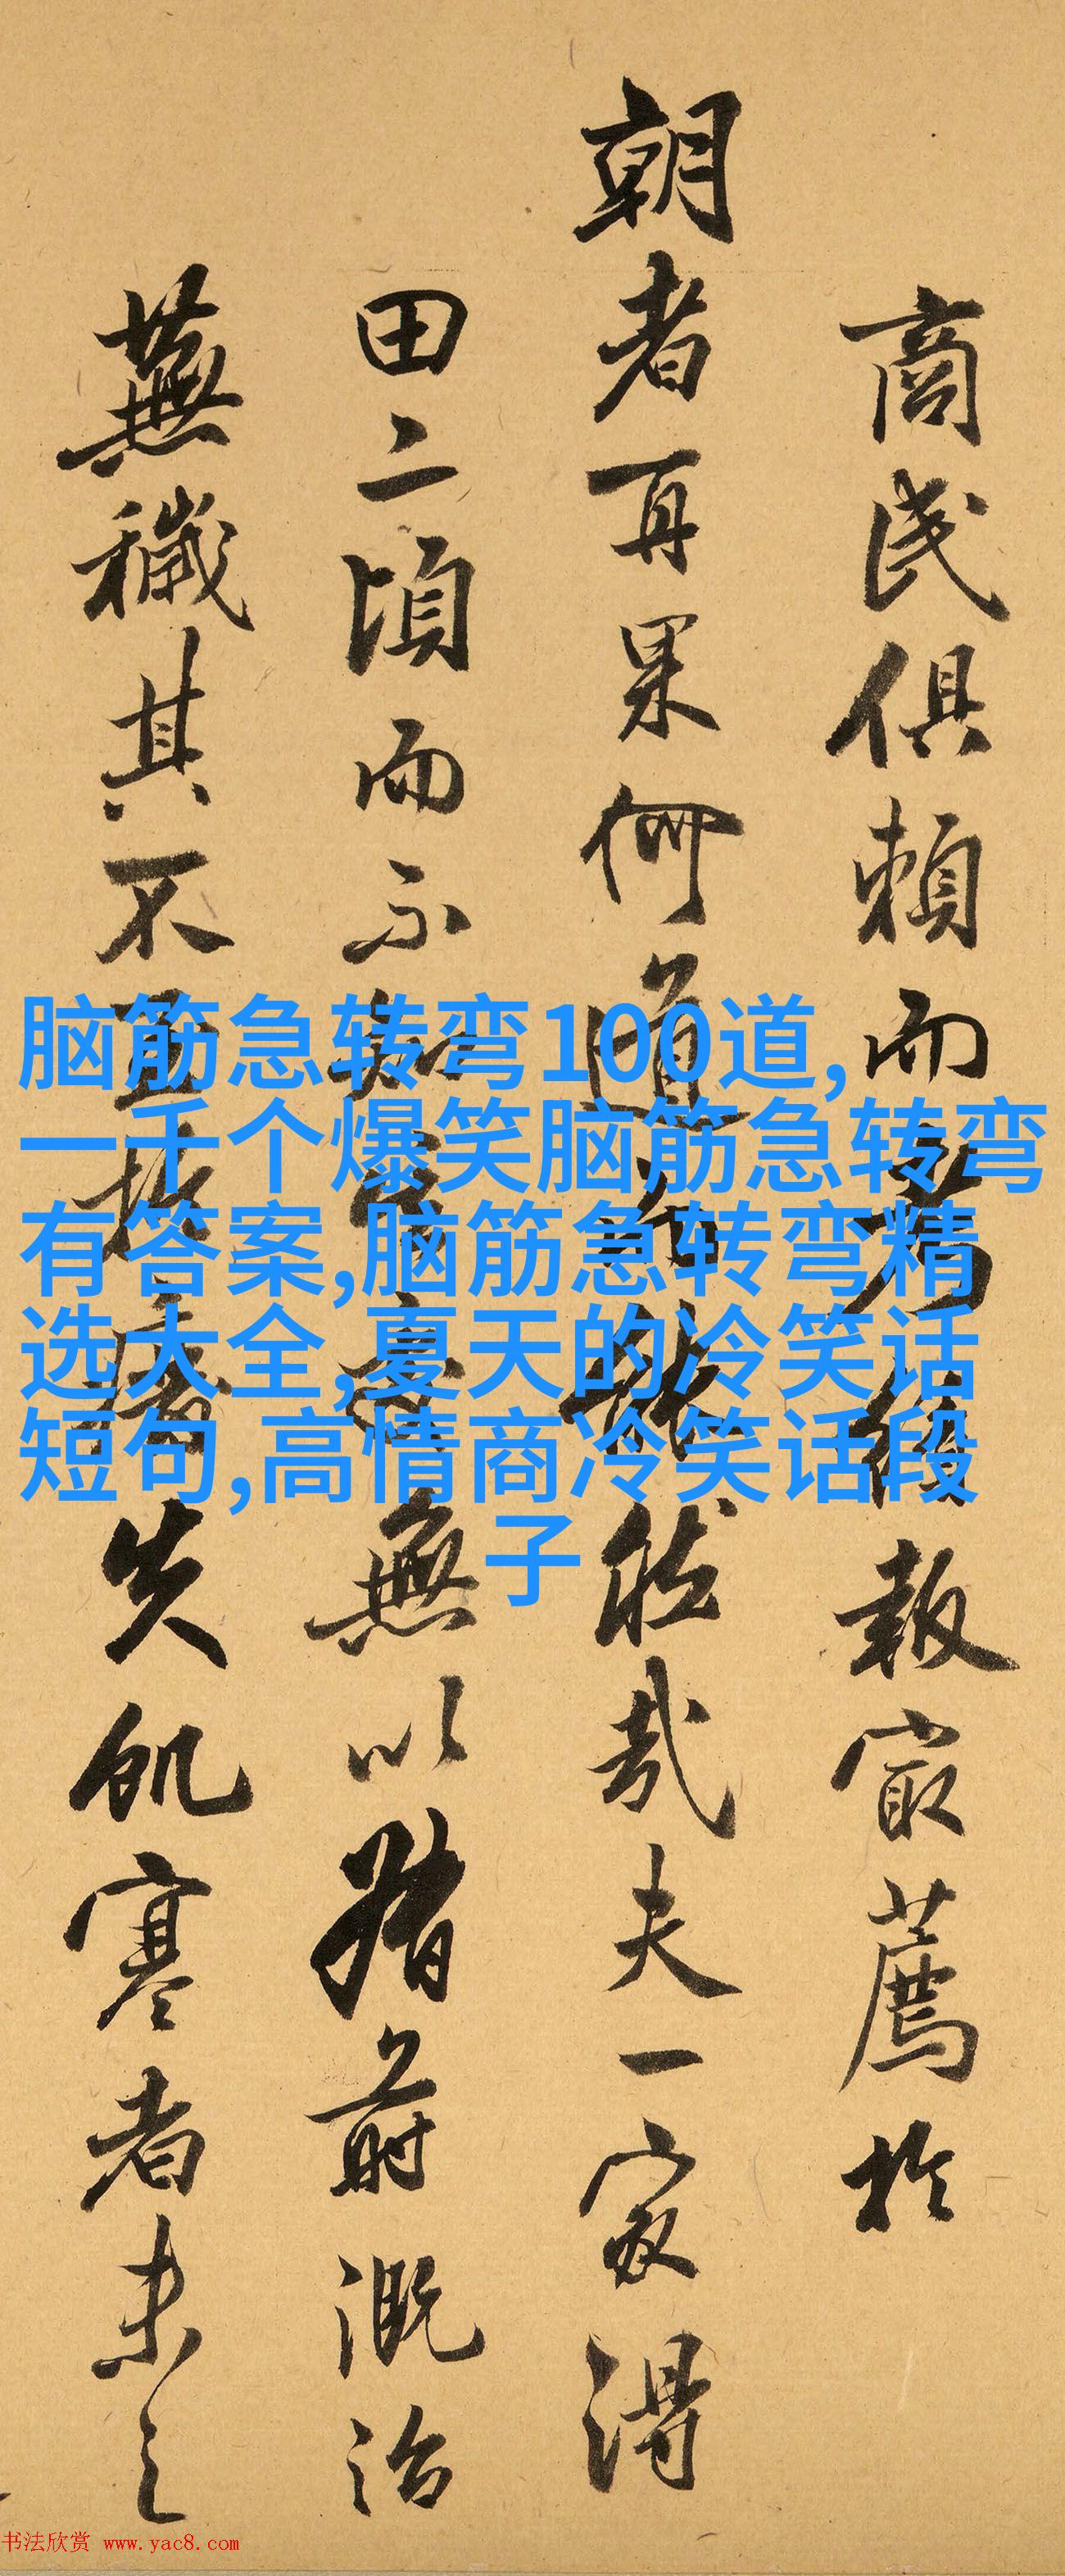 商民俱賴而報最薦於
朝者再果何道能哉夫一家得
田二頃而不無以蓄溉治
蕪穢其不失飢寒者未之
脑筋急转弯100道,
一千个爆笑脑筋急转弯
有答案,脑筋急转弯精
选大全,夏天的冷笑话
短句,高情商冷笑话段
子
书法欣赏 www.yac8.com